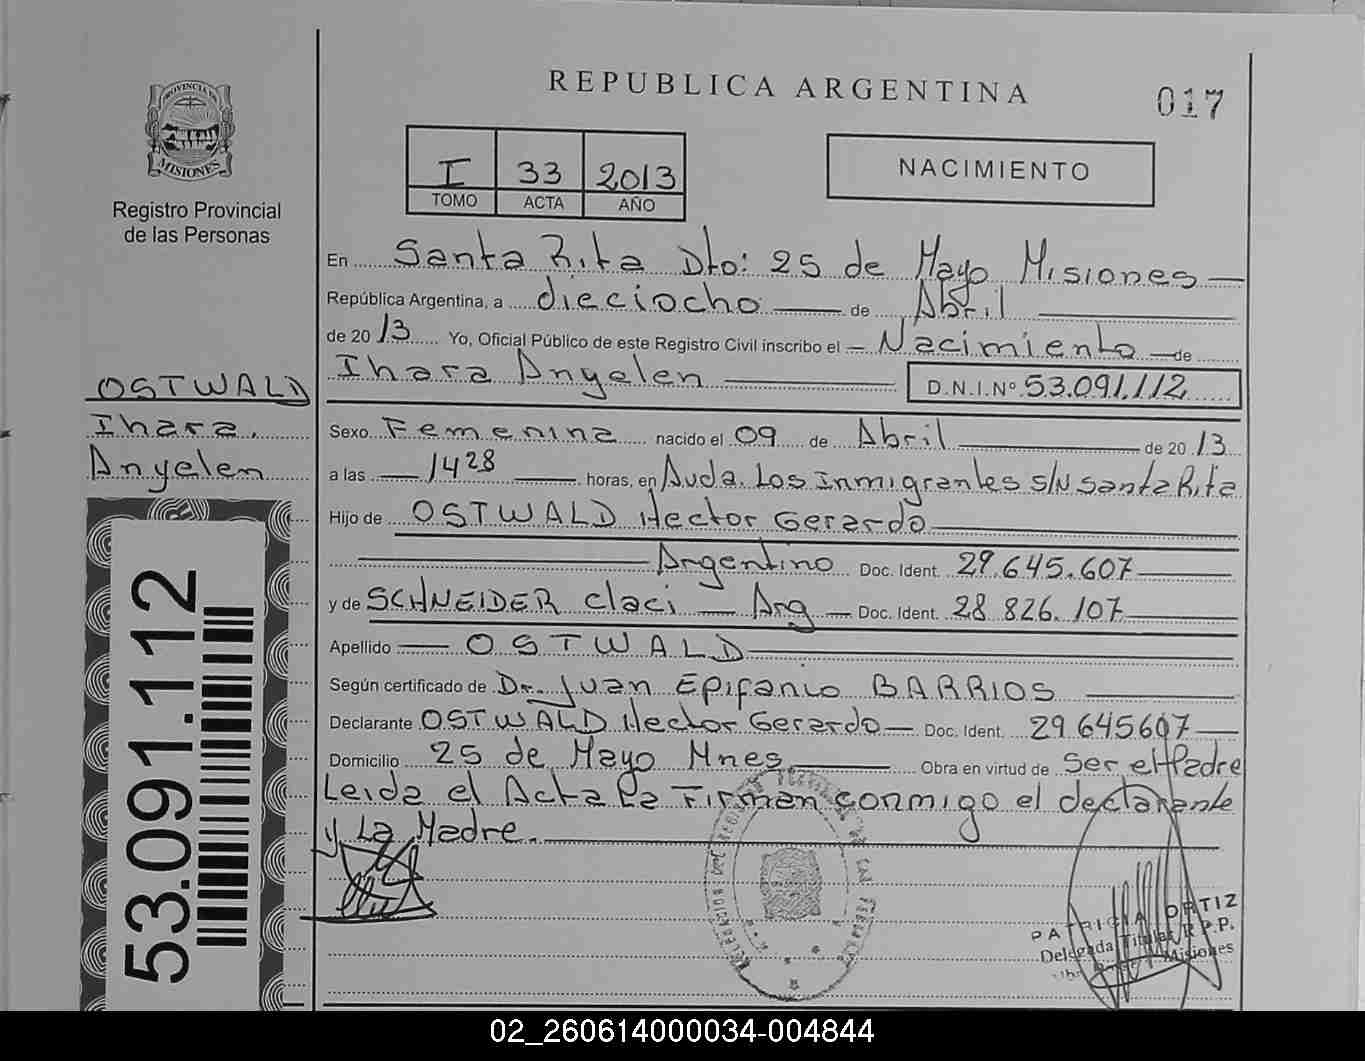 REPUBLICA ARGENTINA
017
PROVINCIA DE
MISIONES
Registro Provincial
de las Personas
I 33 2013
TOMO ACTA AÑO
NACIMIENTO
En Santa Rita Dto: 25 de Mayo Misiones
República Argentina, a dieciocho de Abril
de 2013 Yo, Oficial Público de este Registro Civil inscribo el Nacimiento de
Ihara Anyelen D.N.I.Nº 53.091.112
OSTWALD
Ihara.
Anyelen
Sexo Femenina nacido el 09 de Abril de 2013
a las 1428 horas, en Avda. Los Inmigrantes S/N Santa Rita
Hijo de OSTWALD Hector Gerardo
Argentino Doc. Ident. 29.645.607
y de SCHNEIDER Claci Arg Doc. Ident. 28 826.107
Apellido OSTWALD
Según certificado de Dr. Juan Epifanio BARRIOS
Declarante OSTWALD Hector Gerardo Doc. Ident. 29 645607
Domicilio 25 de Mayo Mnes Obra en virtud de Ser el Padre
Leida el Acta La Firman conmigo el declarante
y La Madre.
53.091.112
PATRICIA ORTIZ
Delegada Titular R.P.P.
Misiones
02_260614000034-004844